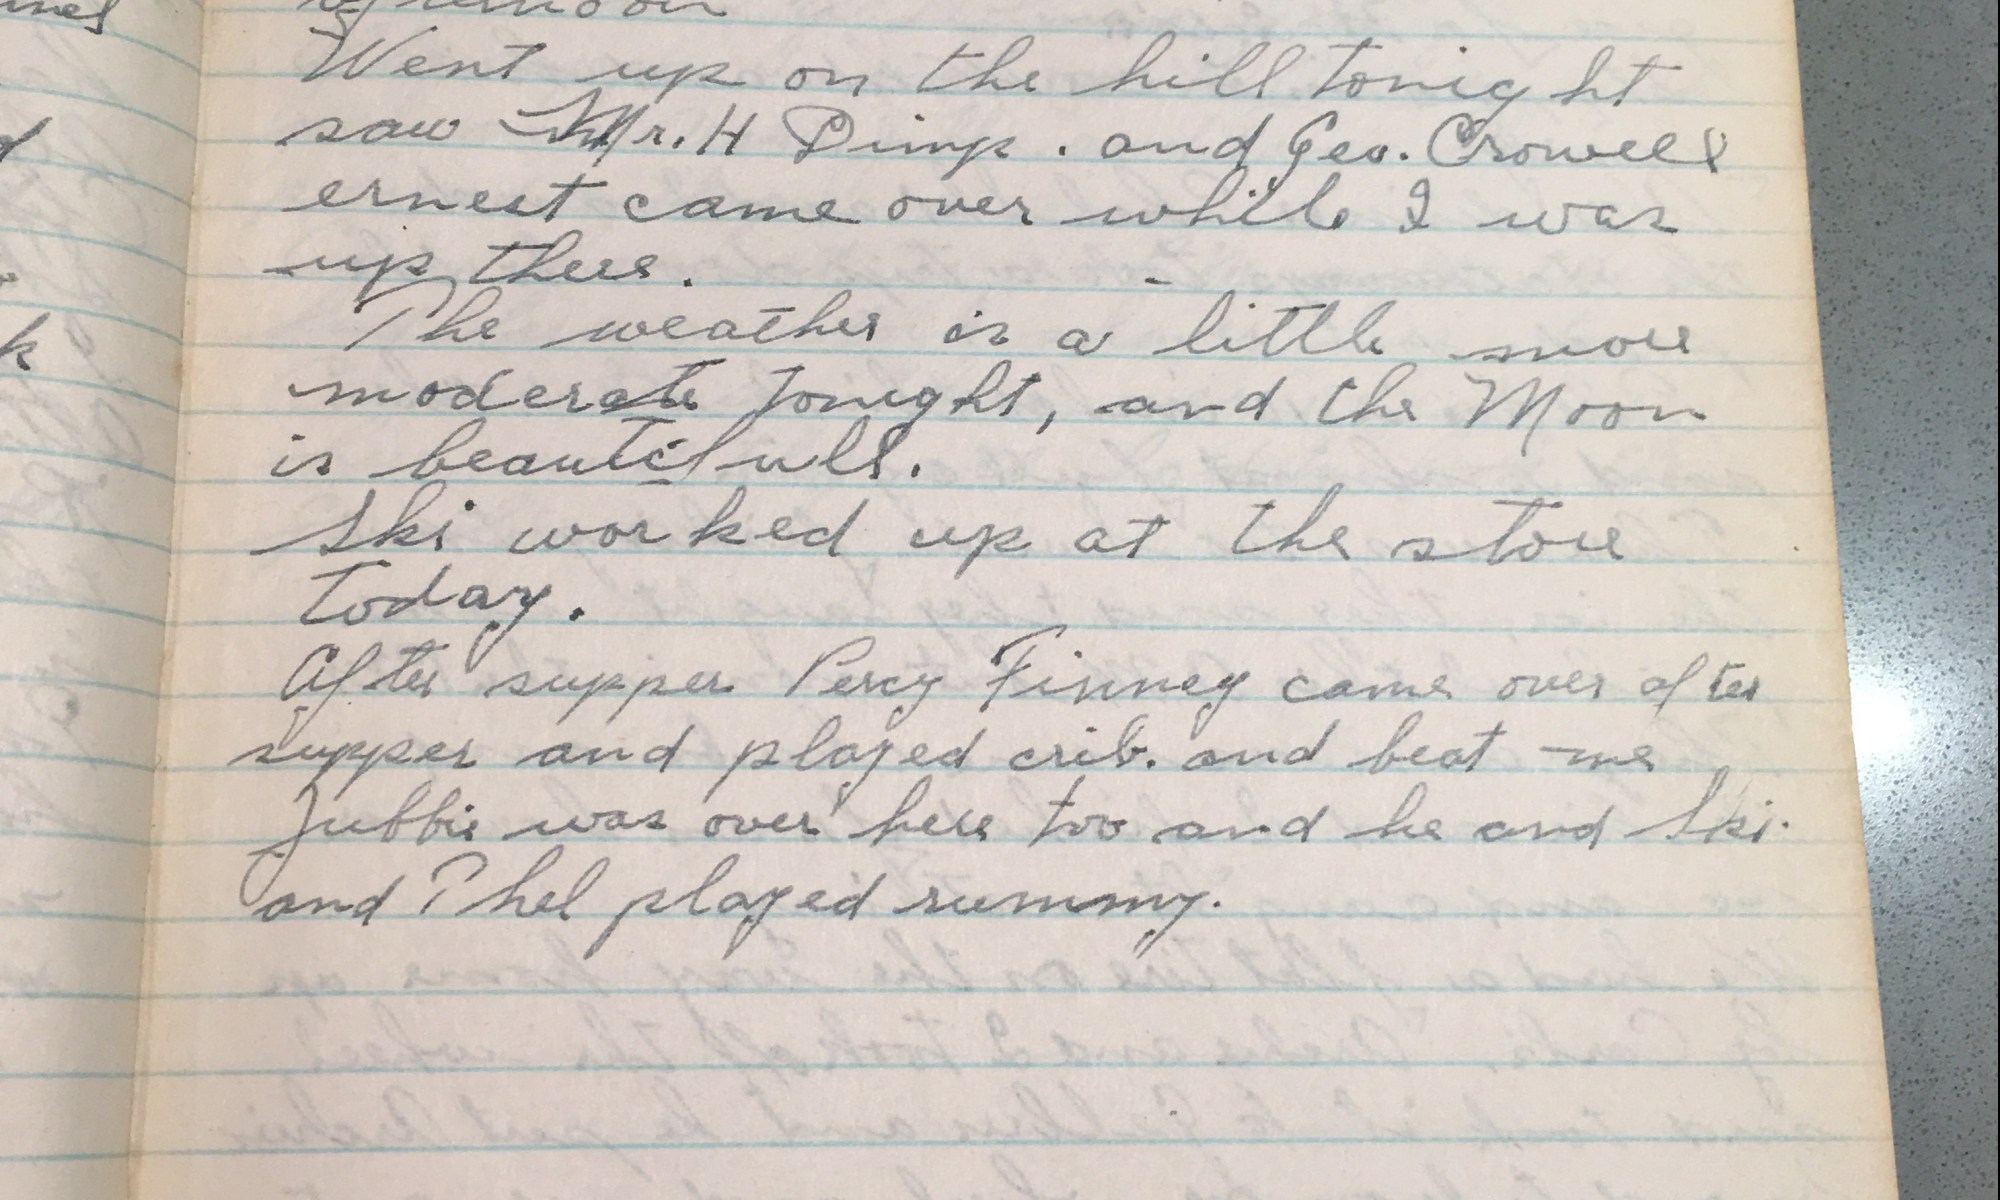 afternoon
Went up on the hill tonight
saw Mr. H Dimp. and Geo. Crowell
ernest came over while I was
up there.
The weather is a little more
moderate tonight, and the Moon
is beautifull.
Ski worked up at the store
today.
After supper Percy Finney came over after
supper and played crib. and beat me
Jubbie was over here too and he and Ski.
and Phel played rummy.